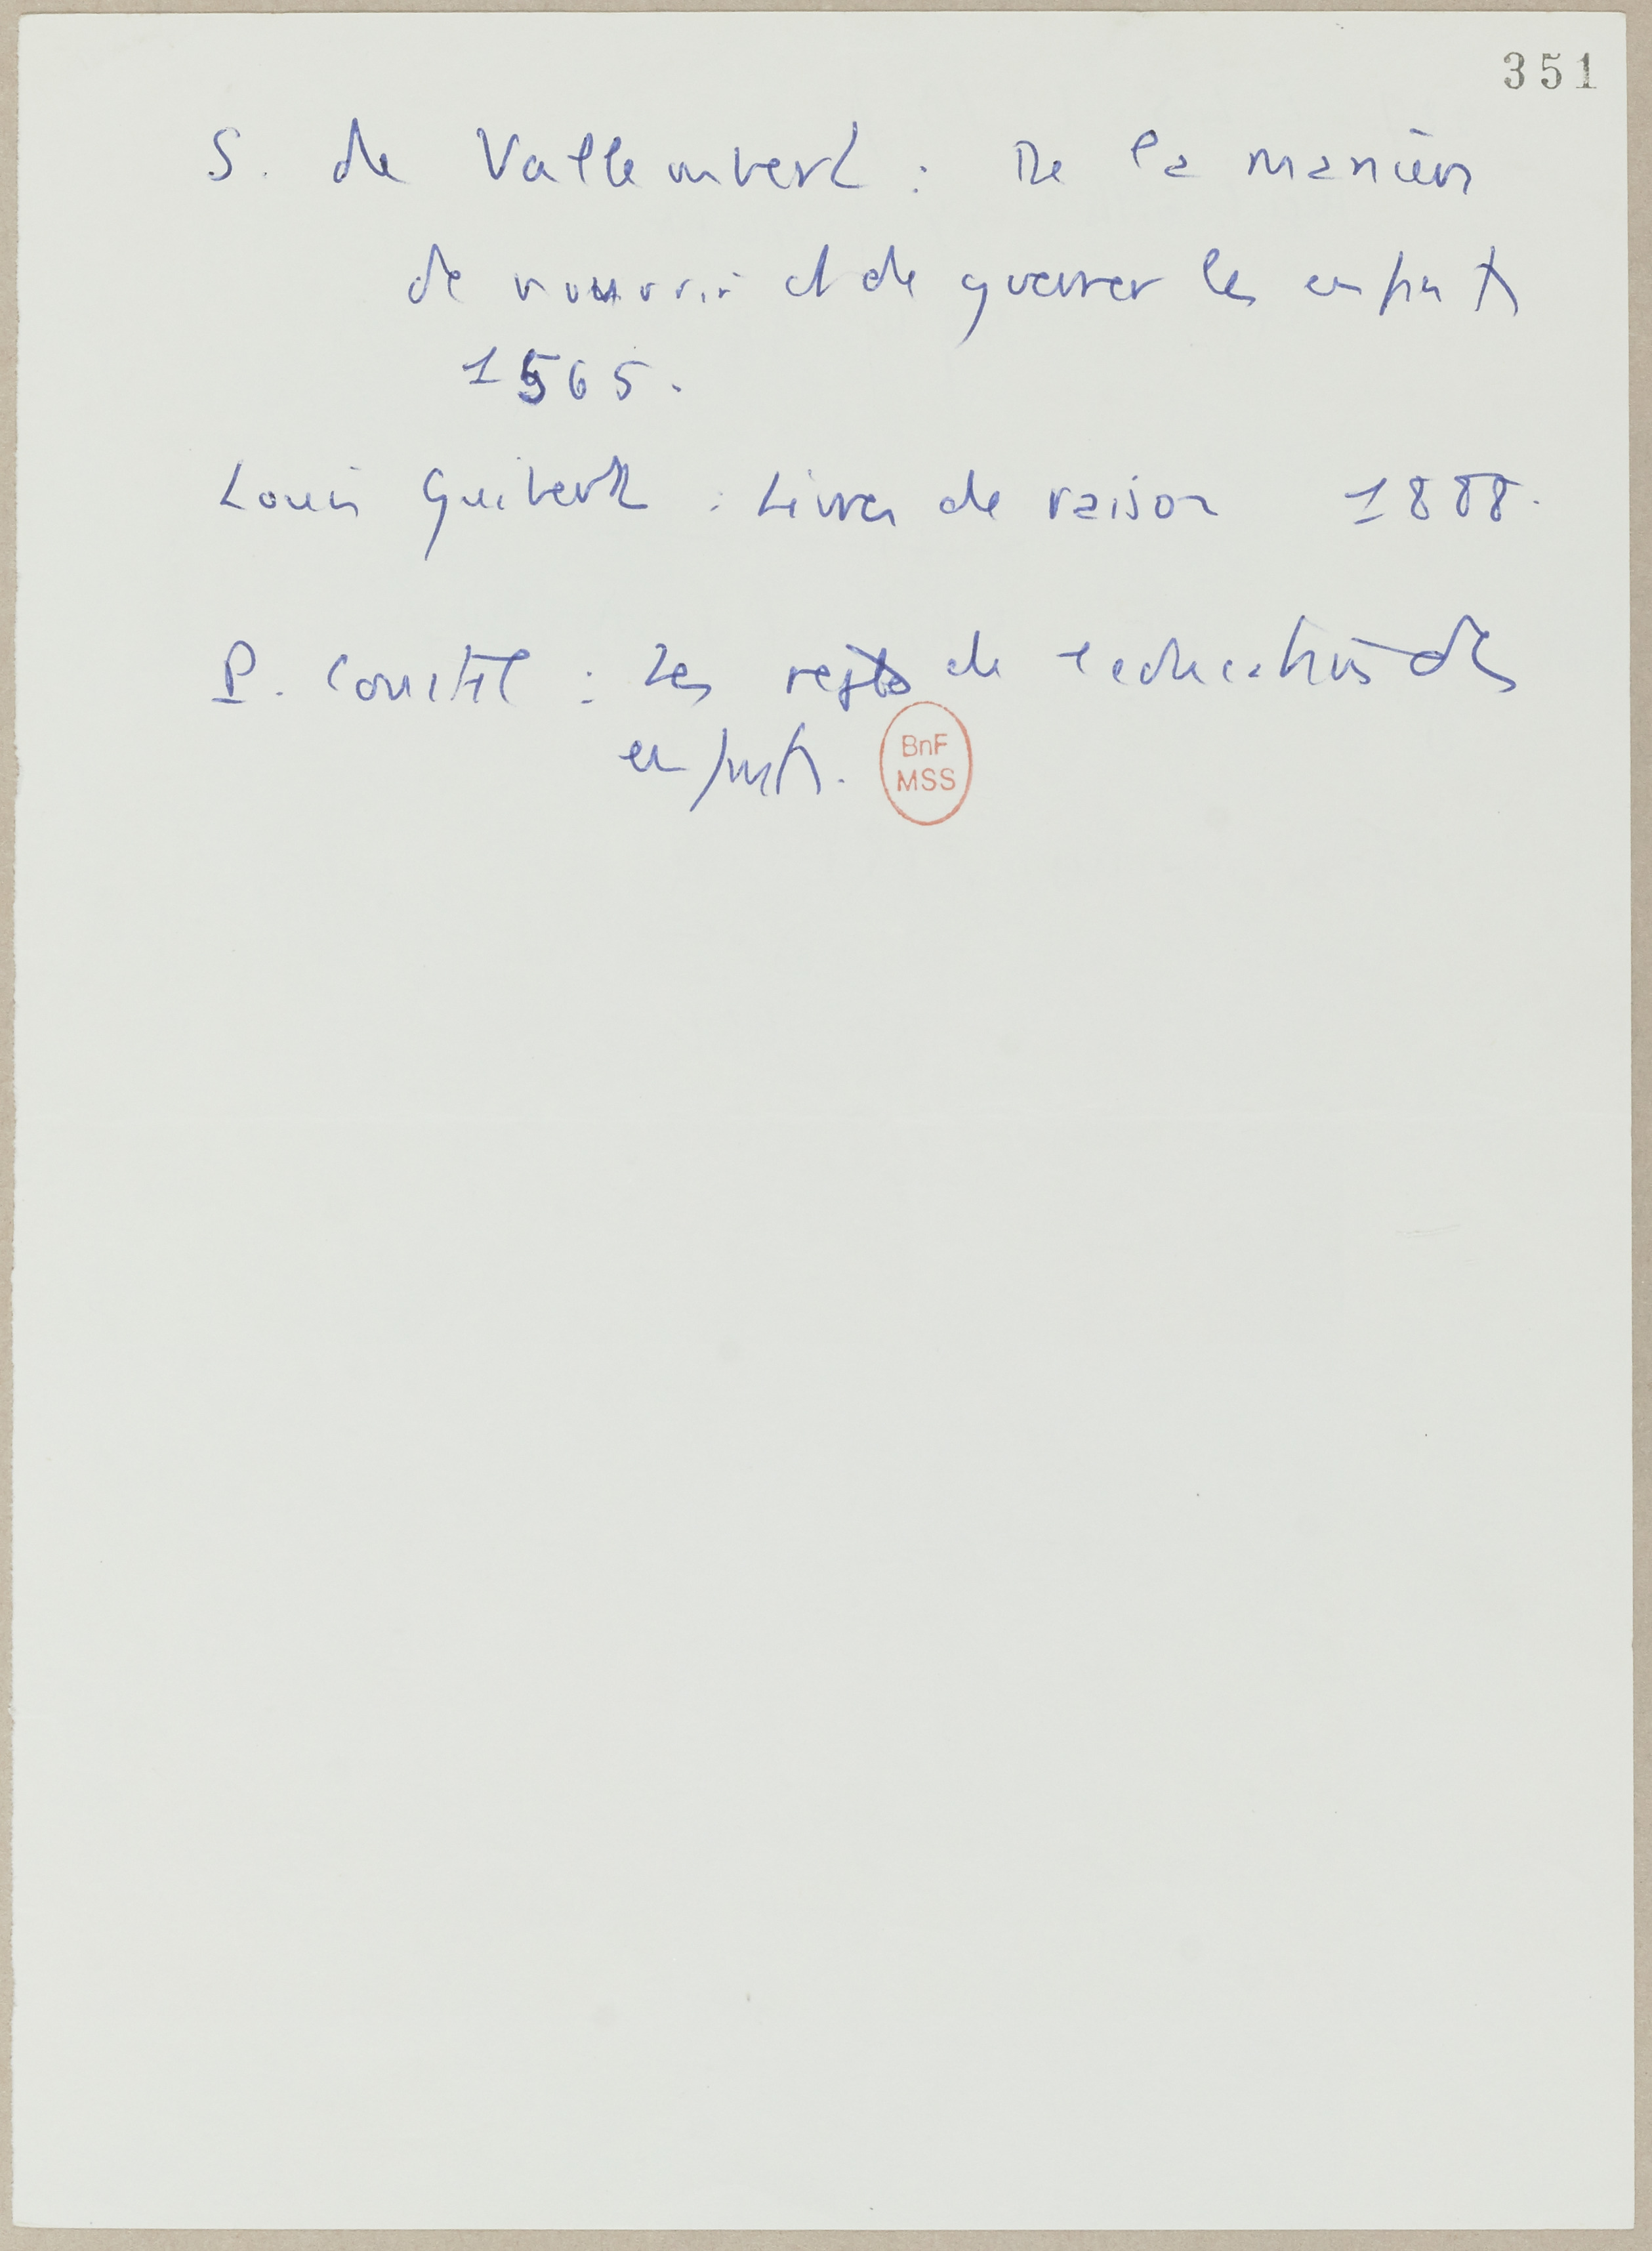 351
S. de Vallembert : De la manière
de nourrir et de gouverner les enfants
1565.
Louis Guibert : Livres de raison 1888.
P. Coustel : Les règles de l'éducation des
enfants.
BnF
MSS